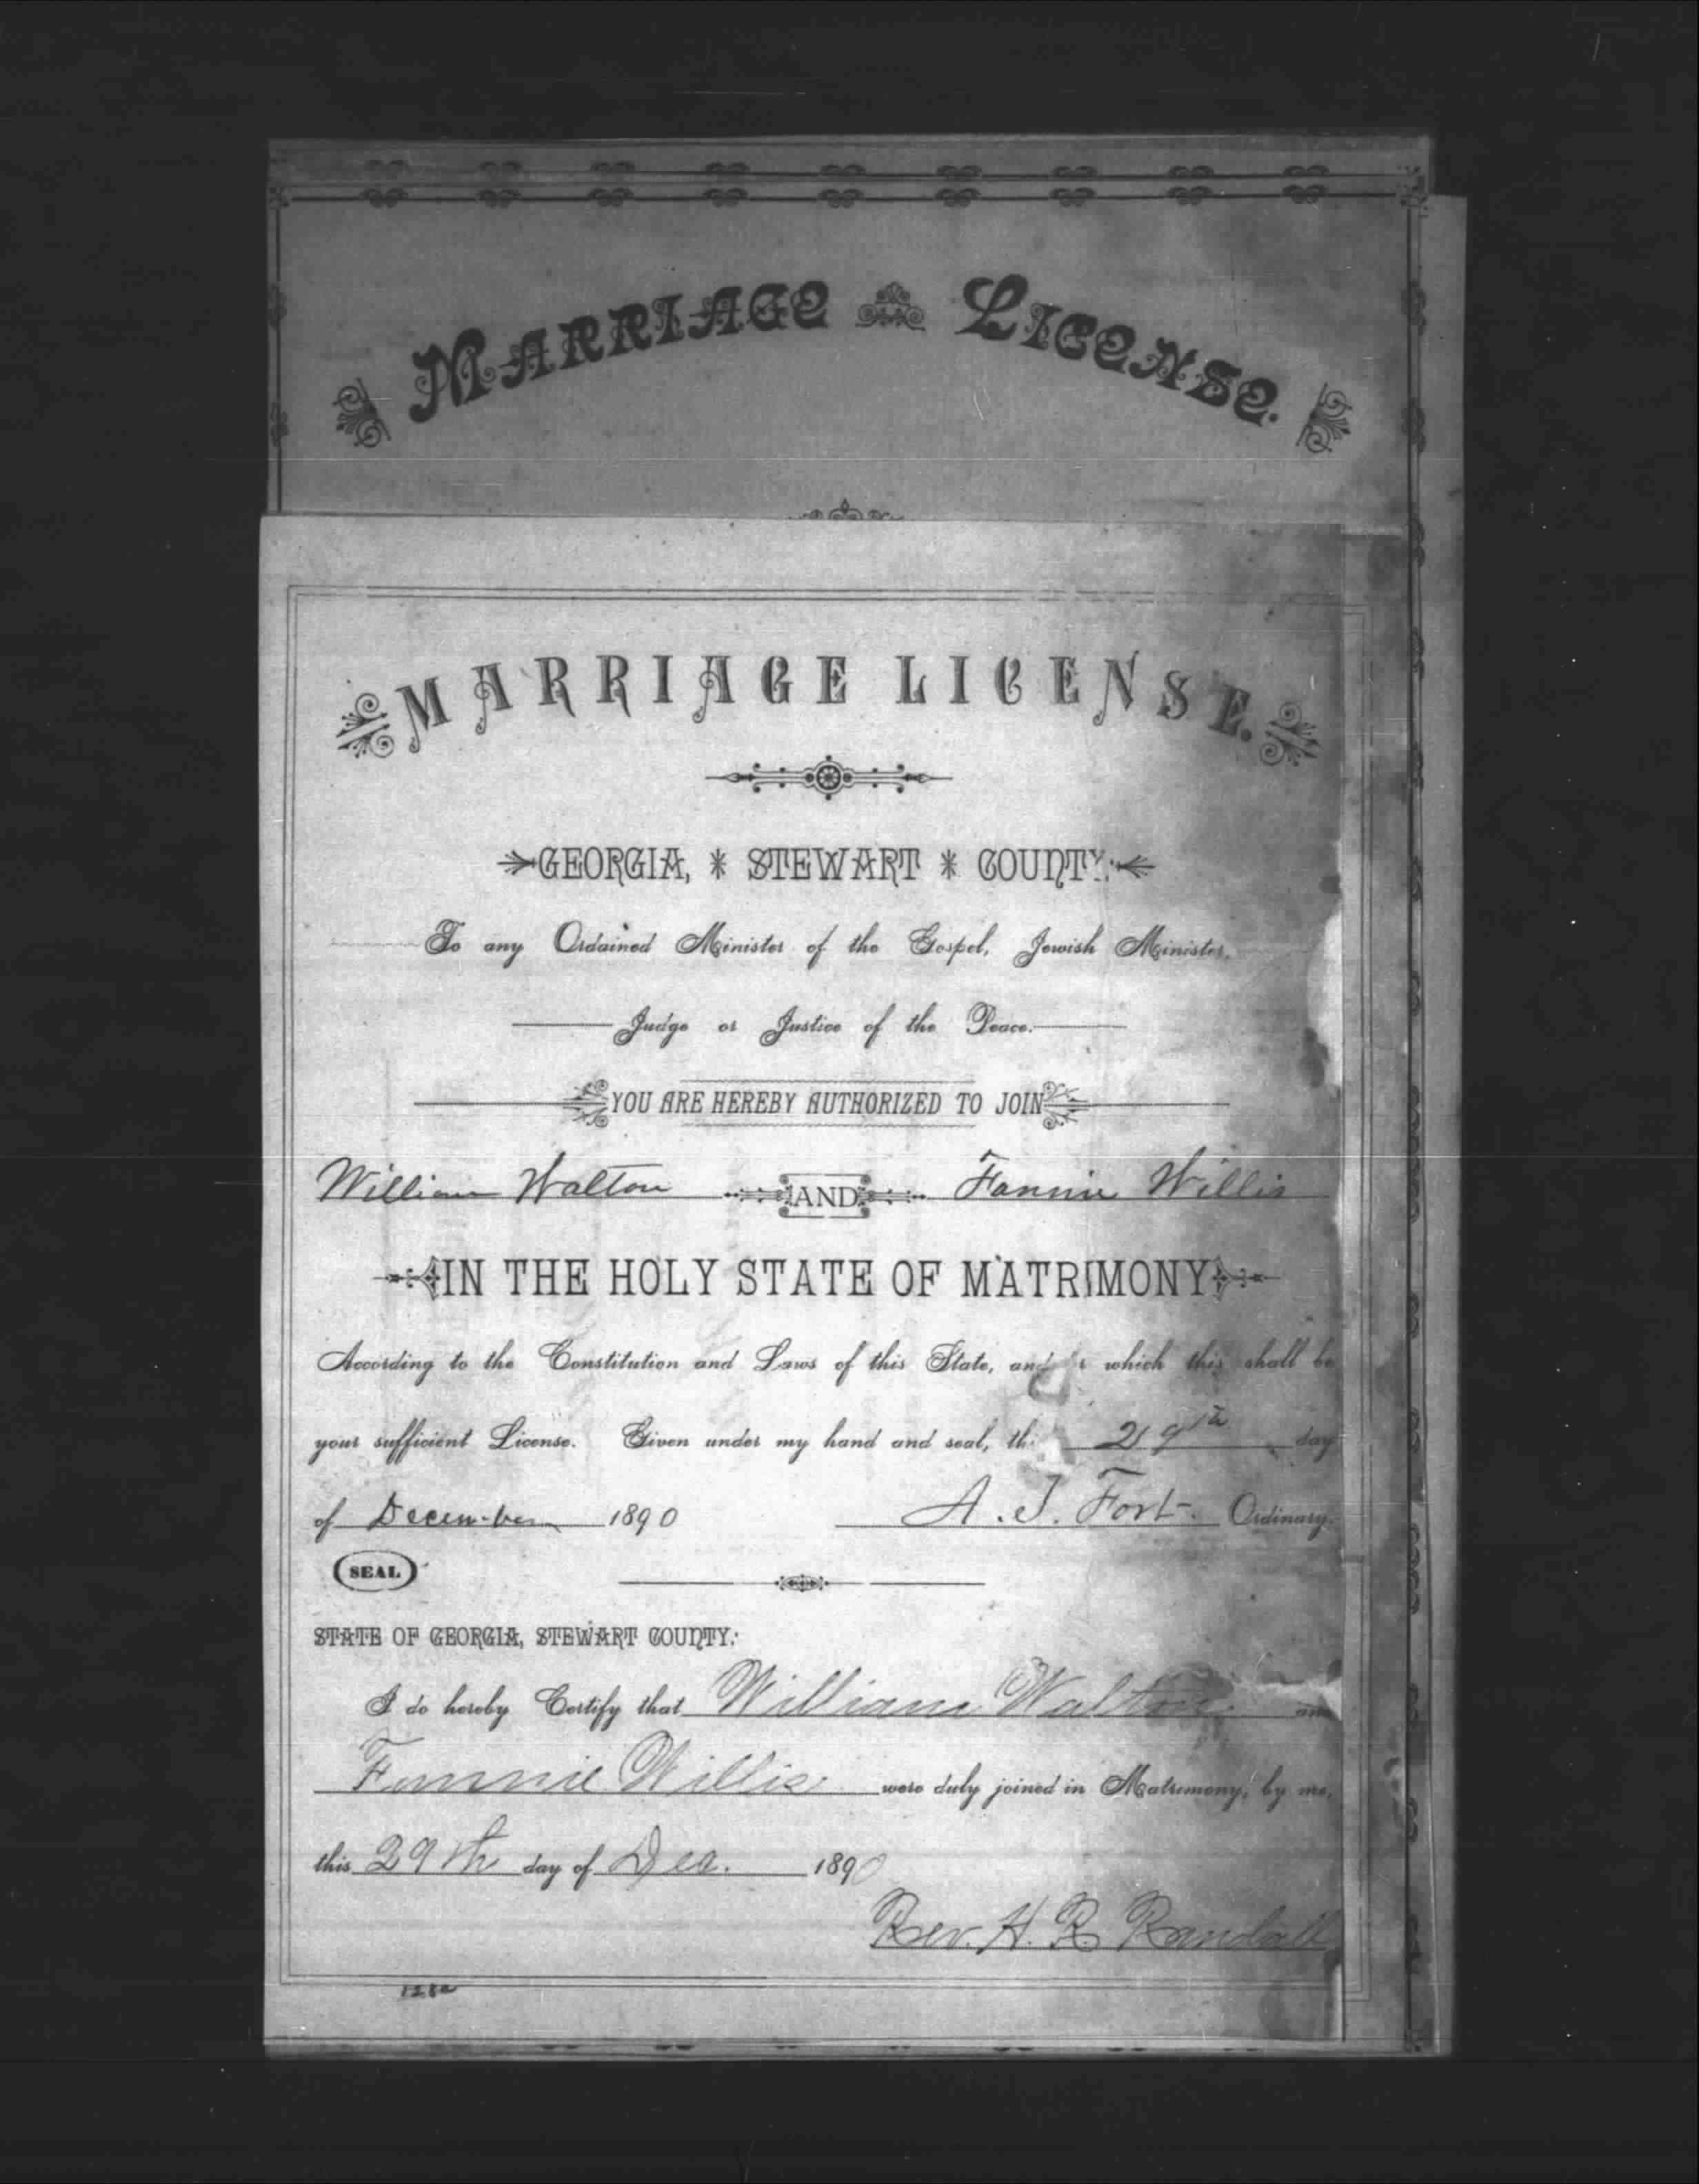 MARRIAGE LICENSE.
MARRIAGE LICENSE.
GEORGIA, * STEWART * COUNTY:
To any Ordained Minister of the Gospel, Jewish Minister,
Judge or Justice of the Peace.
YOU ARE HEREBY AUTHORIZED TO JOIN
William Walton AND Fannie Willis
IN THE HOLY STATE OF MATRIMONY
According to the Constitution and Laws of this State, and which this shall be
your sufficient License. Given under my hand and seal, thi 29th day
of December 1890 A. J. Fort. Ordinary.
SEAL
STATE OF GEORGIA, STEWART COUNTY:
I do hereby Certify that William Walton and
Fannie Willis were duly joined in Matrimony, by me,
this 29th day of Dec. 1890
Rev. H. R. Randall